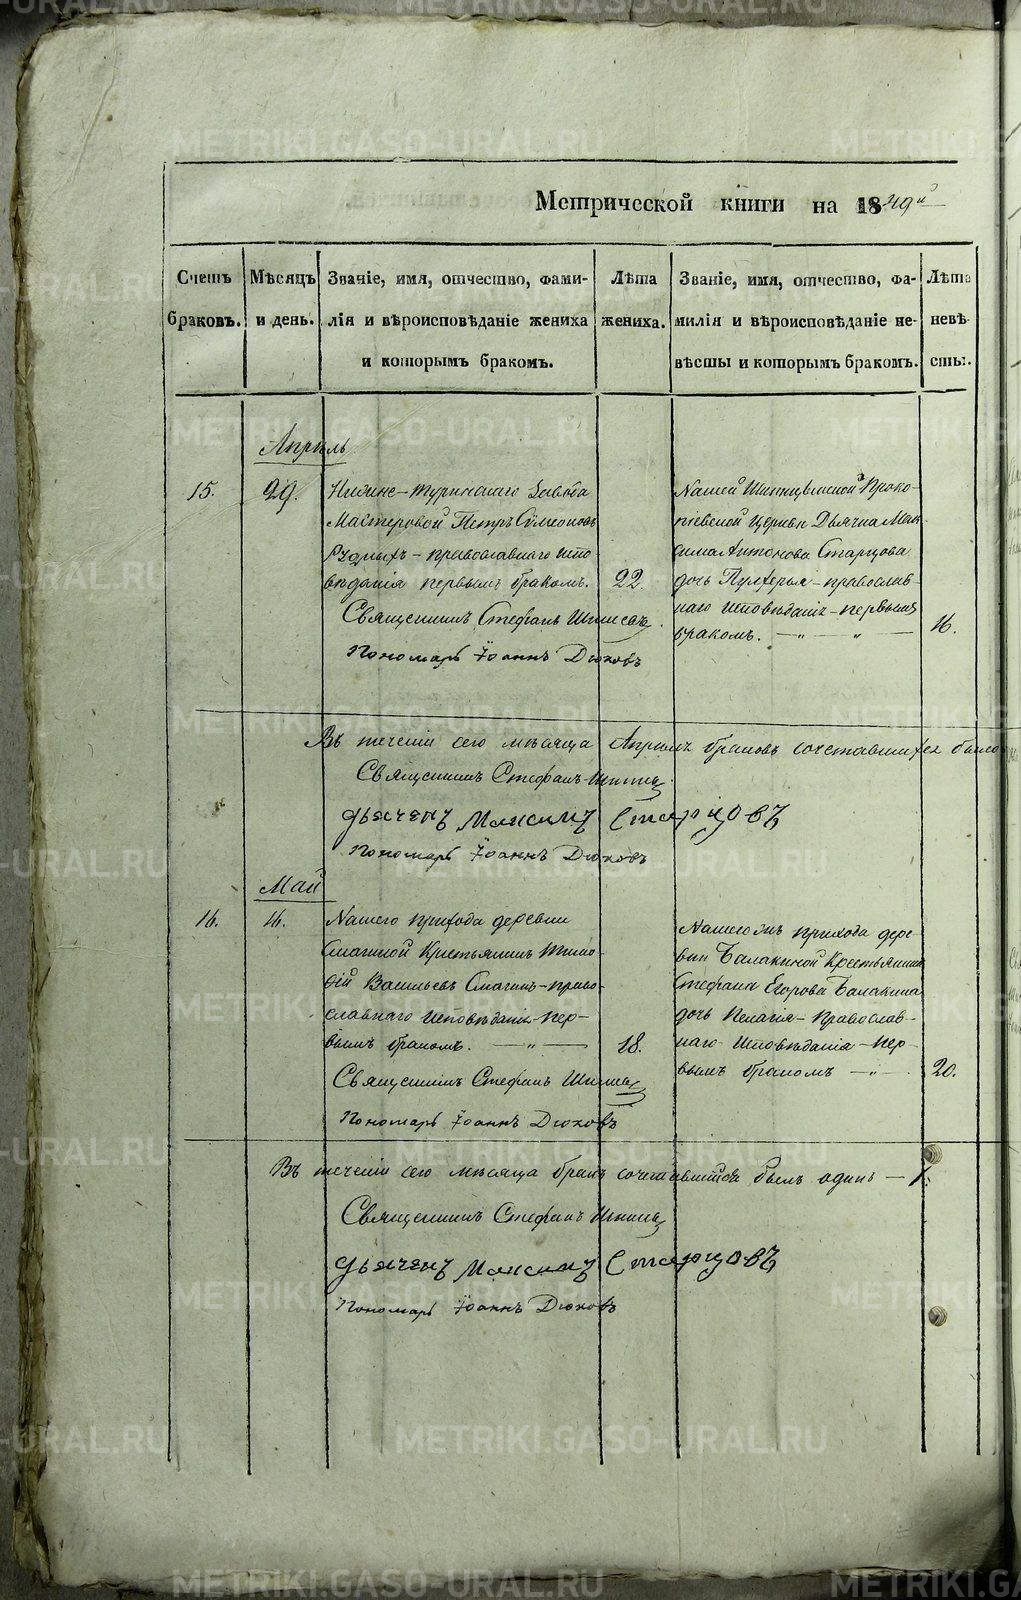 Метрической книги на 1849й
Счетъ браковъ.
Мѣсяцъ и день.
Званіе, имя, отчество, фами-
лія и вѣроисповѣданіе жениха
и которымъ бракомъ.
Лѣта жениха.
Званіе, имя, отчество, фа-
милія и вѣроисповѣданіе не-
вѣсты и которымъ бракомъ.
Лѣта невѣ-
сты.
Апрѣль
15.
29.
Нижне-Туринскаго Завода
Мастеровой Петръ Сѵмеоновъ
православнаго испо
вѣданія первымъ бракомъ.
22.
Священникъ Стефанъ
Пономарь Іоаннъ Дюковъ
Нашей Проко-
піевской Церкви Дьячка Мак-
сима Антонова Старцова
дочь православ-
наго исповѣданія первымъ
бракомъ.
16.
Въ теченіи сего мѣсяца Апрѣля браковъ сочетавшихся было
Священникъ Стефанъ
дьячекъ Максимъ Старцовъ
Пономарь Іоаннъ Дюковъ
Май
16.
16.
Нашего прихода деревни
Смагиной Крестьянинъ Тимо-
фій Васильевъ Смагинъ-право-
славнаго исповѣданія-пер-
вымъ бракомъ.
18.
Священникъ Стефанъ
Пономарь Іоаннъ Дюковъ
Нашего жъ прихода дере-
вни Балакиной Крестьянина
Стефана Егорова Балакина
дочь Пелагія-Православ-
наго исповѣданія-пер-
вымъ бракомъ
20.
Въ теченіи сего мѣсяца бракъ сочетавшійся былъ одинъ - 1.
Священникъ Стефанъ
дьячекъ Максимъ Старцовъ
Пономарь Іоаннъ Дюковъ
METRIKI.GASO-URAL.RU